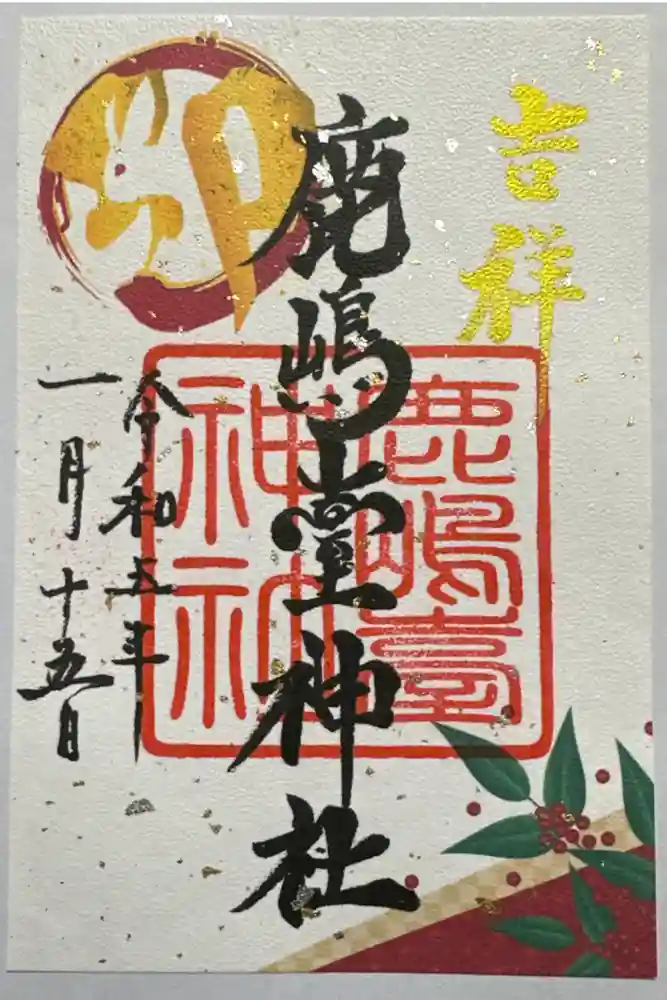 吉祥
鹿嶋臺神社
鹿嶋臺
神社
令和五年
一月十五日
卯